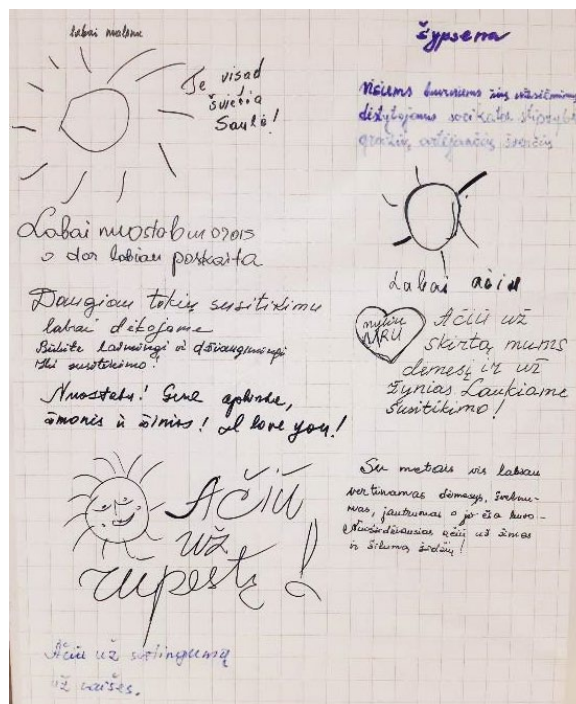 labai malonu
Te visad
šviečia
Saulė!
Labai nuostabus oras
o dar labiau paskaita
Daugiau tokių susitikimų
labai dėkojame
Būkite laimingi ir džiaugsmingi
Iki susitikimo!
Nuostabu! Gera aplinka,
žmonės ir žinios! I love you!
AČIŪ
už
rūpestį!
Ačiū už svetingumą
už vaišes.
šypsena
Visiems buvusiems šių
dėstytojams sveikatos stiprybės
gražių artėjančių švenčių
Labai ačiū
myliu
MRU
Ačiū už
skirtą mums
dėmesį ir už
žynias Laukiame
susitikimo!
Su metais vis labiau
vertinamas dėmesys, švelnu-
mas, jautrumas o jo čia buvo
Nuoširdžiausias ačiū už žinias
ir šilumą širdžių!